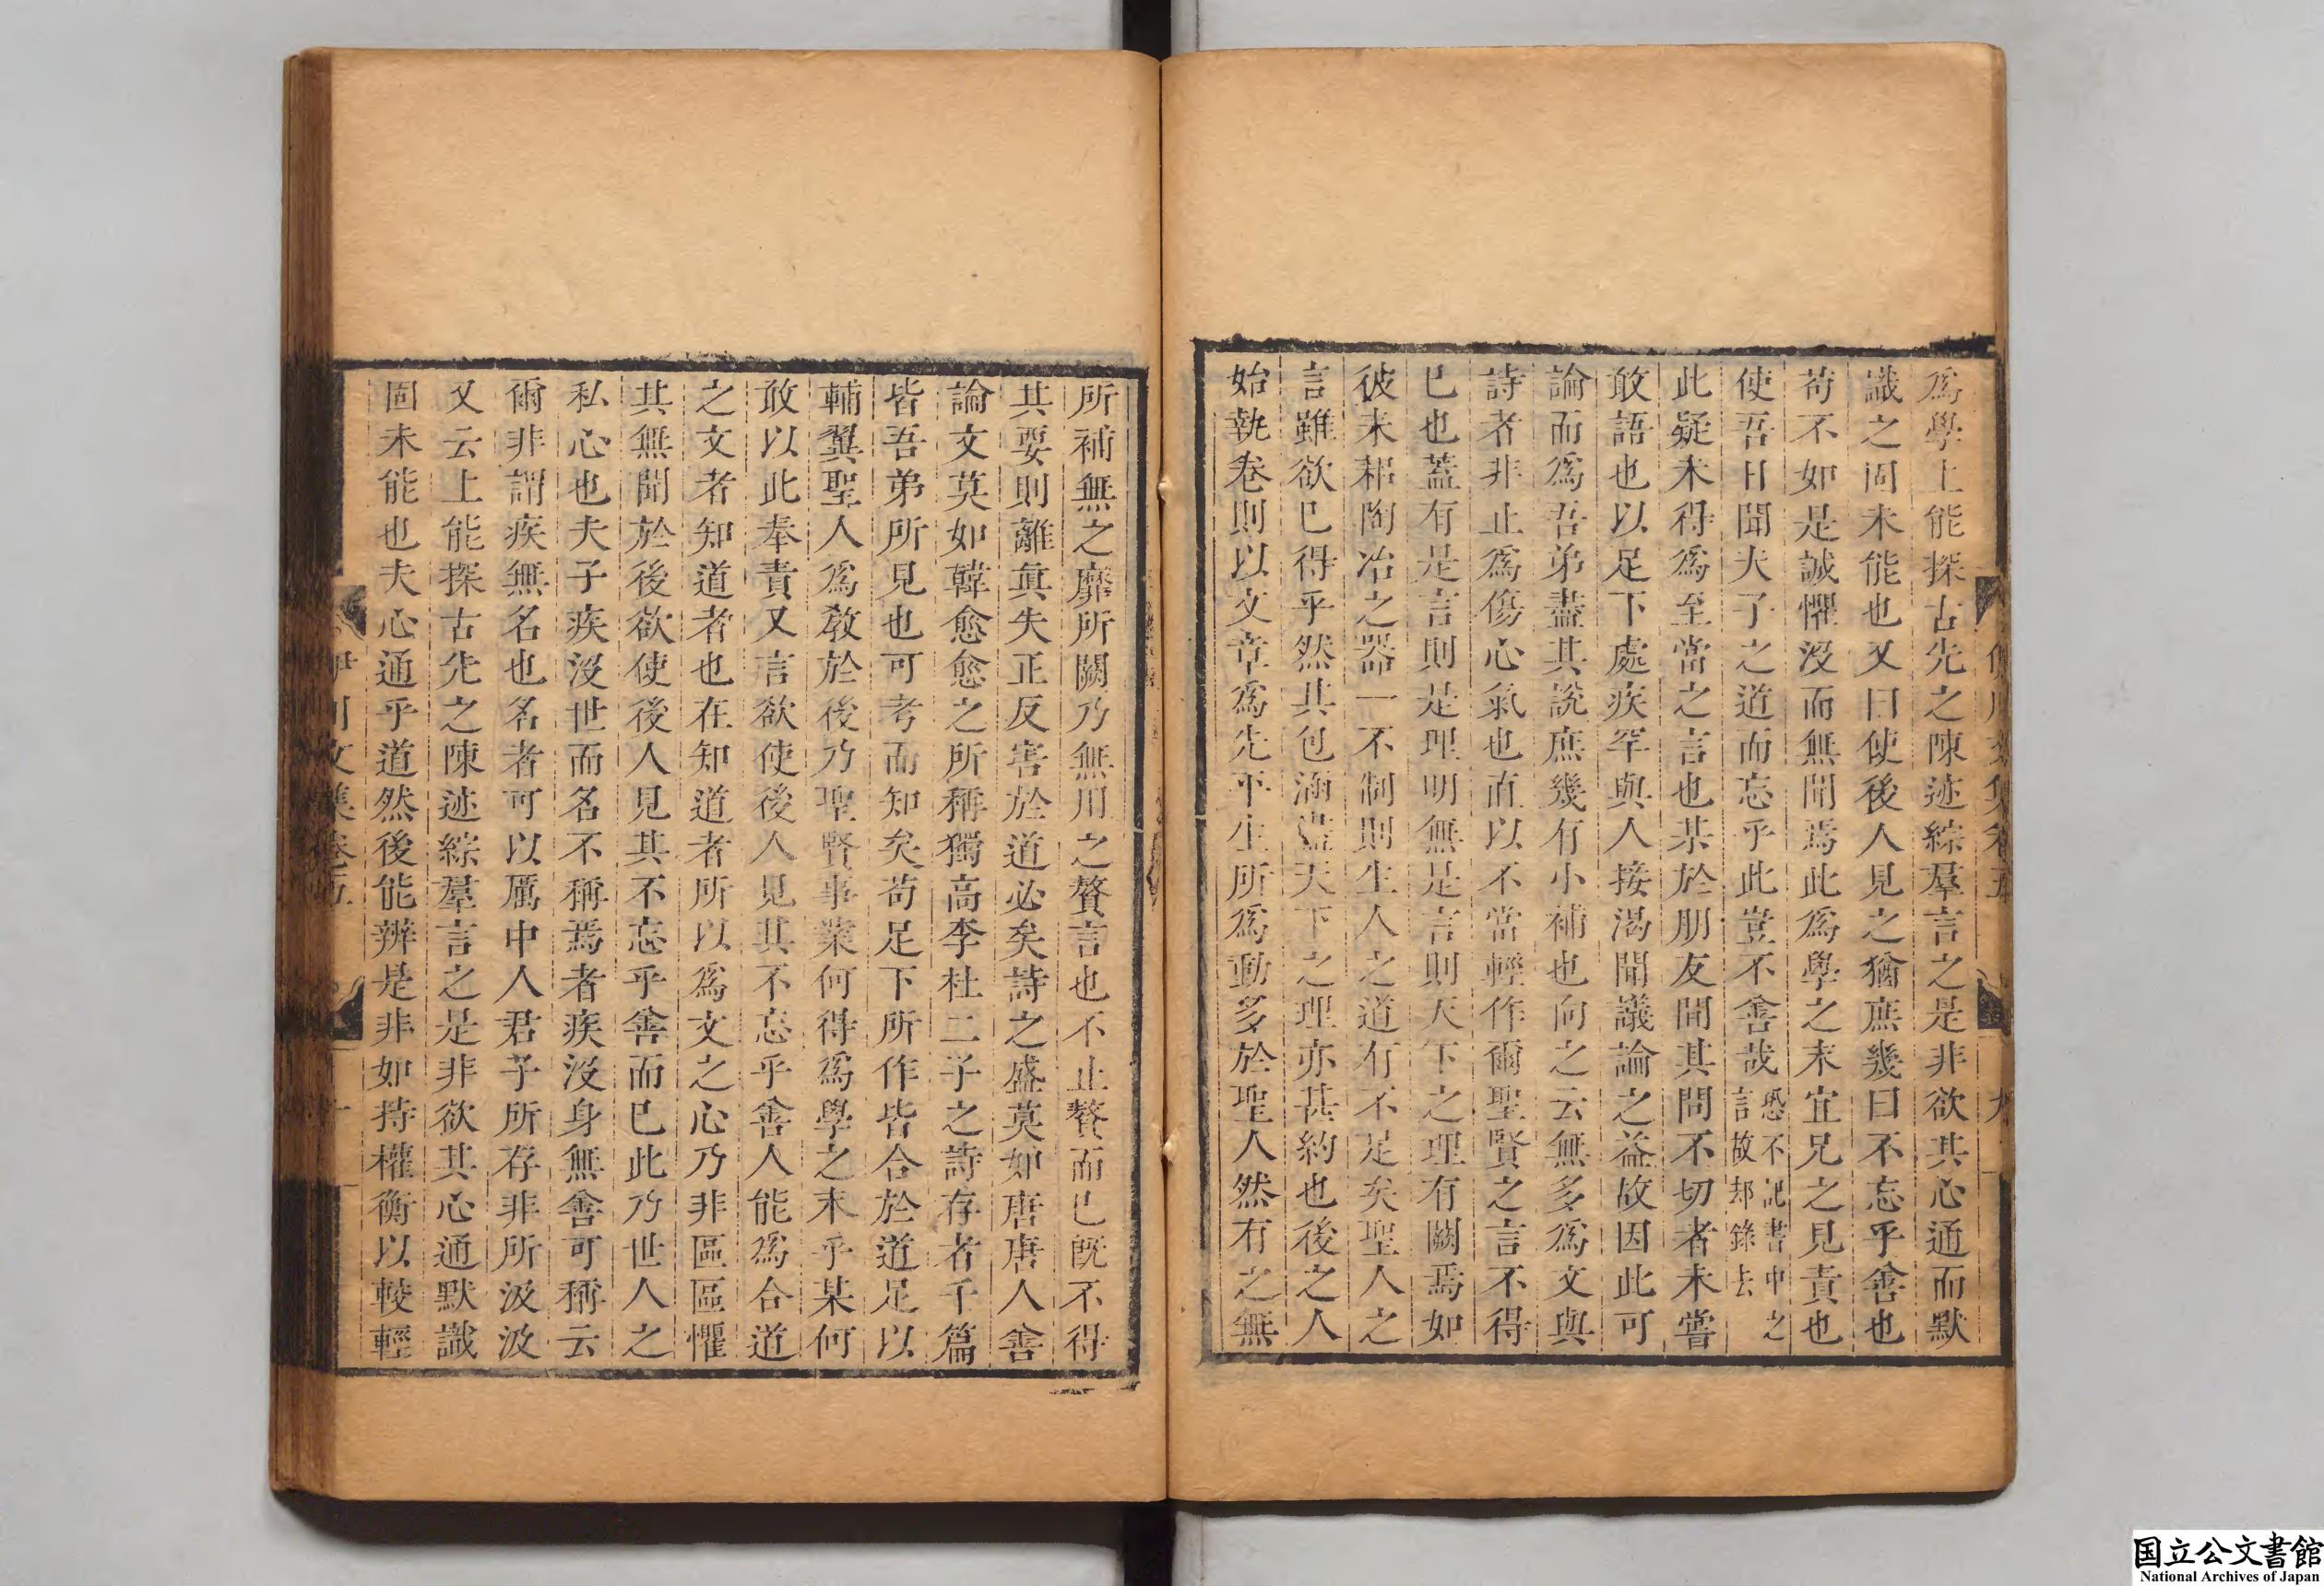 爲學上能探古先之陳迹綜羣言之是非欲其心通而默
識之固未能也又曰使後人見之猶庶幾曰不忘乎善也
苟不如是誠懼沒而無聞焉此爲學之末宜兄之見責也
使吾日聞夫子之道而忘乎此豈不善哉恐不記書中之言故却錄去
此疑未得爲至當之言也某於朋友閒其問不切者未嘗
敢語也以足下處疾罕與人接渴聞議論之益故因此可
論而爲吾弟盡其說庶幾有小補也向之云無多爲文與
詩者非止爲傷心氣也直以不當輕作爾聖賢之言不得
已也蓋有是言則是理明無是言則天下之理有闕焉如
彼耒耜陶冶之器一不制則生人之道有不足矣聖人之
言雖欲已得乎然其包涵盡天下之理亦甚約也後之人
始執卷則以文章爲先平生所爲動多於聖人然有之無
所補無之靡所闕乃無用之贅言也不止贅而已旣不得
其要則離眞失正反害於道必矣詩之盛莫如唐唐人善
論文莫如韓愈愈之所稱獨高李杜二子之詩存者千篇
皆吾弟所見也可考而知矣苟足下所作皆合於道足以
輔翼聖人爲敎於後乃聖賢事業何得爲學之末乎某何
敢以此奉責又言欲使後人見其不忘乎善人能爲合道
之文者知道者也在知道者所以爲文之心乃非區區懼
其無聞於後欲使後人見其不忘乎善而已此乃世人之
私心也夫子疾沒世而名不稱焉者疾沒身無善可稱云
爾非謂疾無名也名者可以厲中人君子所存非所汲汲
又云上能探古先之陳迹綜羣言之是非欲其心通默識
固未能也夫心通乎道然後能辨是非如持權衡以較輕
伊川文集卷五
十
国立公文書館
National Archives of Japan